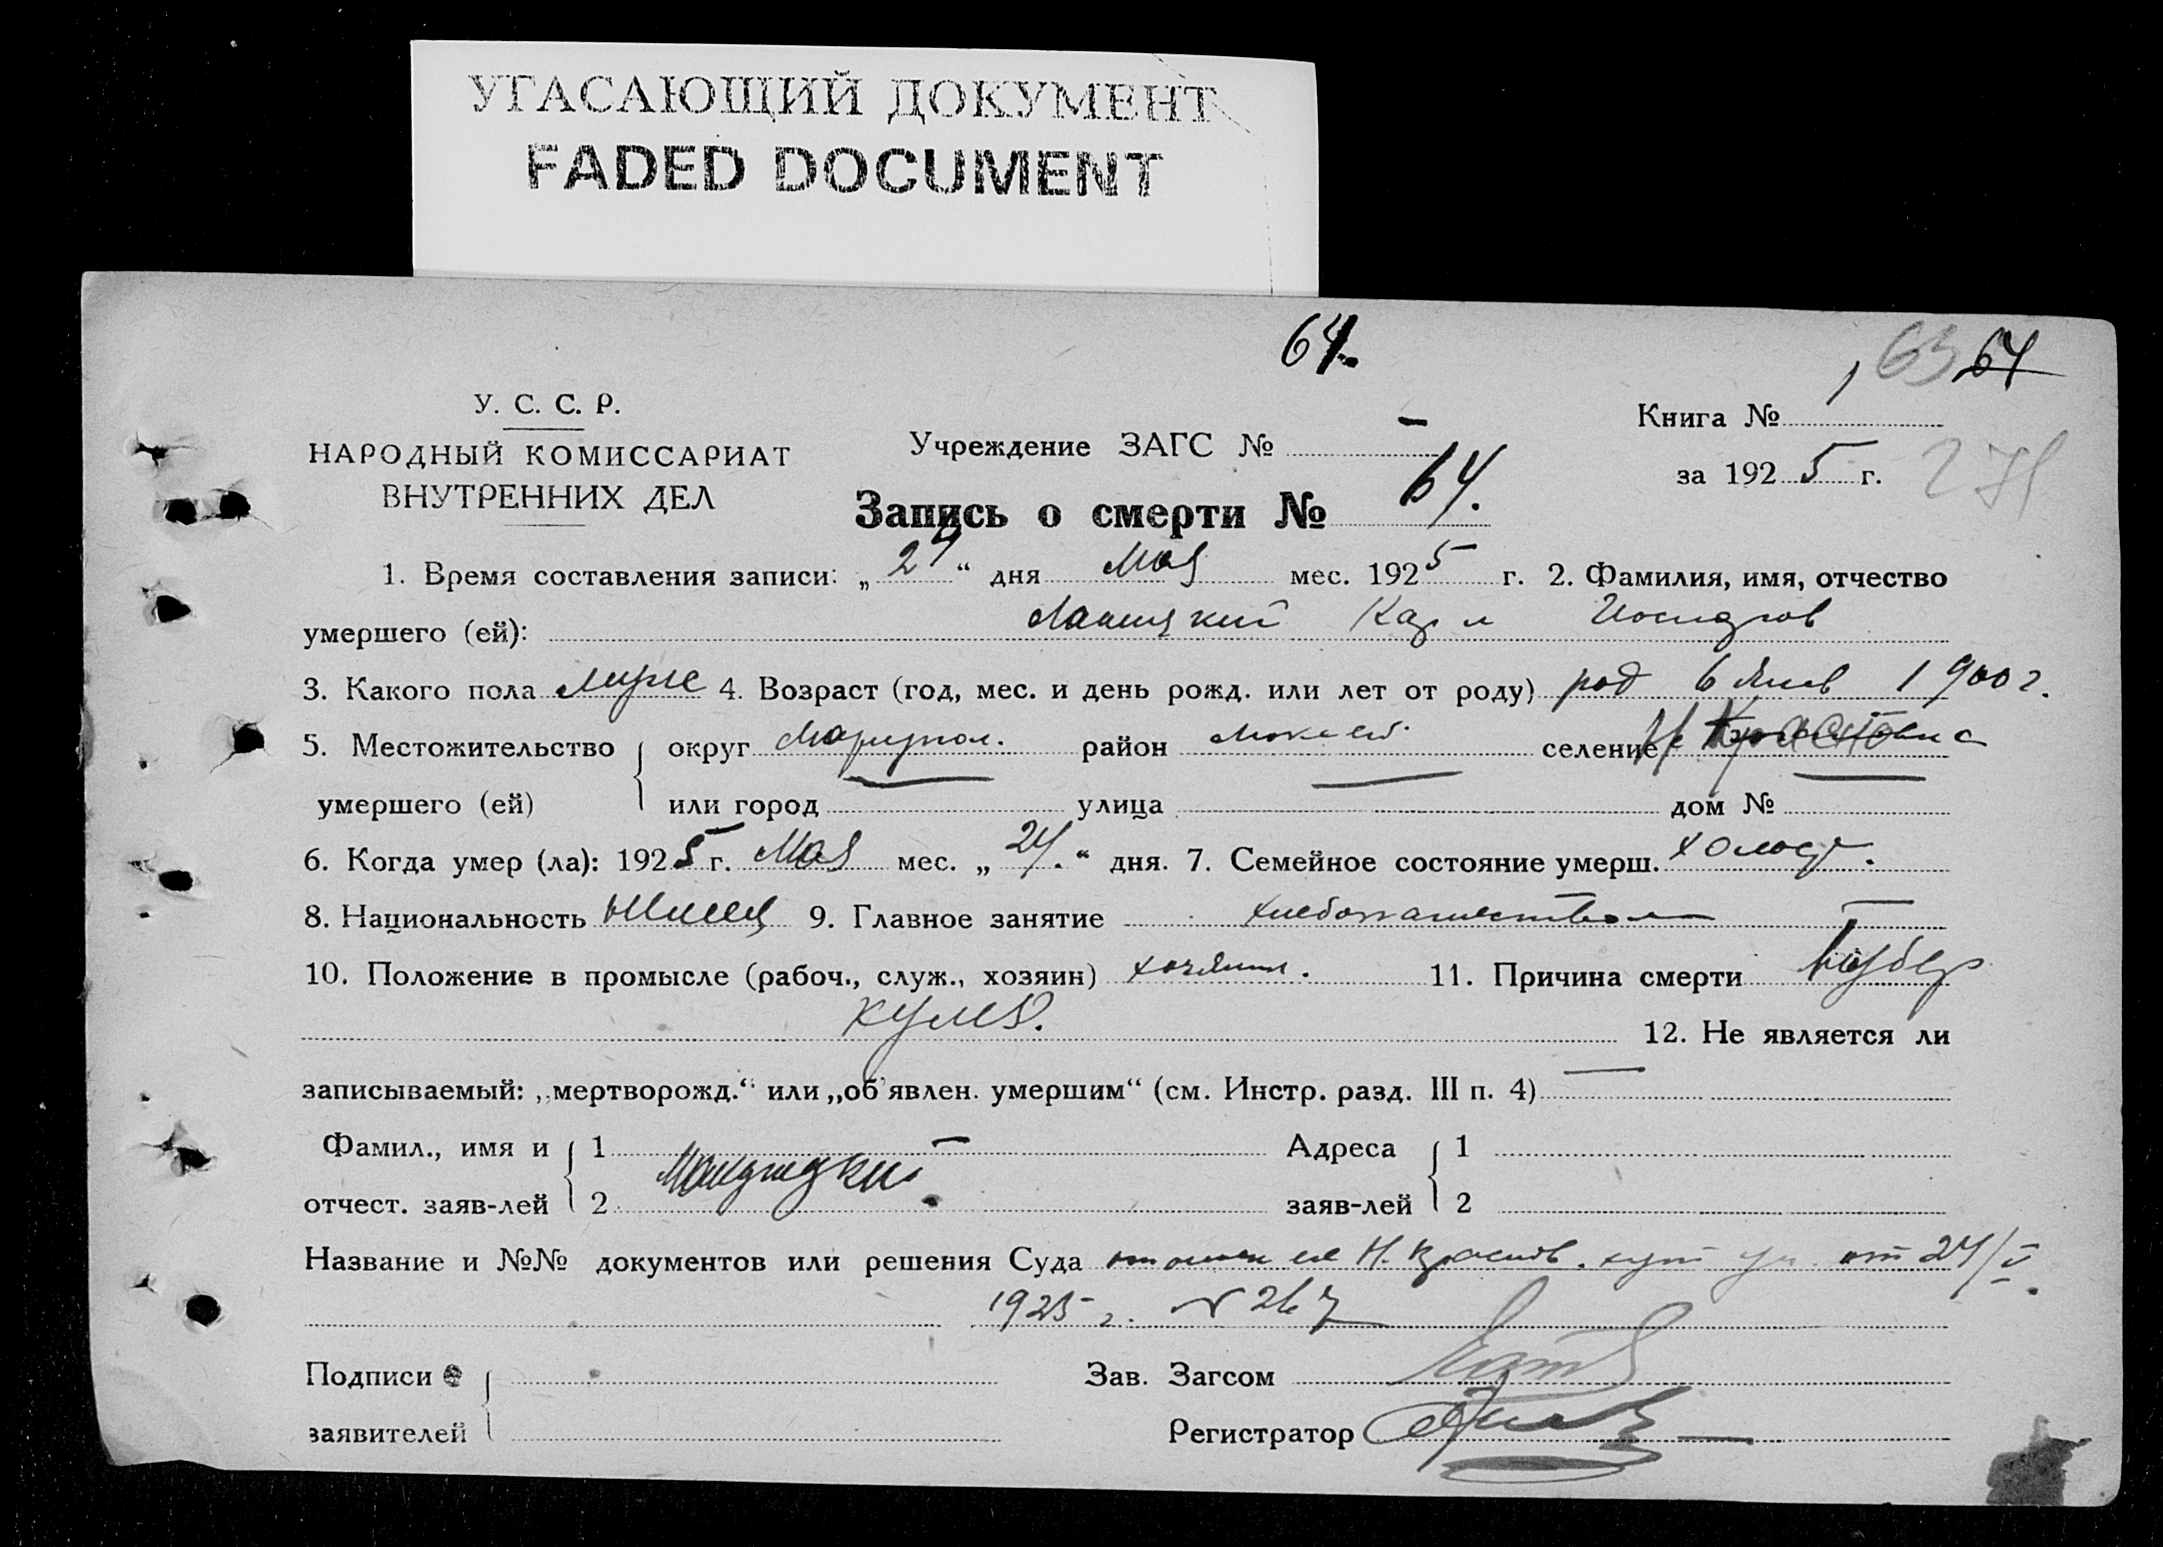 УГАСАЮЩИЙ ДОКУМЕНТ
FADED DOCUMENT
64.
63 64
У. С. С. Р.
НАРОДНЫЙ КОМИССАРИАТ
ВНУТРЕННИХ ДЕЛ
Учреждение ЗАГС № —
Книга № 1
за 1925 г.
Запись о смерти № 64.
1. Время составления записи: „24“ дня Мая мес. 1925 г. 2. Фамилия, имя, отчество
умершего (ей): Карл
3. Какого пола муже 4. Возраст (год, мес. и день рожд. или лет от роду) род 6 Янв 1900 г.
5. Местожительство округ Мариупол. район селение
умершего (ей) или город — улица — дом № —
6. Когда умер (ла): 1925 г. Мая мес. „24.“ дня. 7. Семейное состояние умерш. холост.
8. Национальность немец 9. Главное занятие хлебопашество
10. Положение в промысле (рабоч., служ., хозяин) хозяин. 11. Причина смерти Тубер
кулез. 12. Не является ли
записываемый: „мертворожд.“ или „об'явлен. умершим“ (см. Инстр. разд. III п. 4) —
Фамил., имя и 1 Адреса 1
отчест. заяв-лей 2 заяв-лей 2
Название и №№ документов или решения Суда Н. от 24/V
1925 г. № 267
Подписи Зав. Загсом
заявителей Регистратор